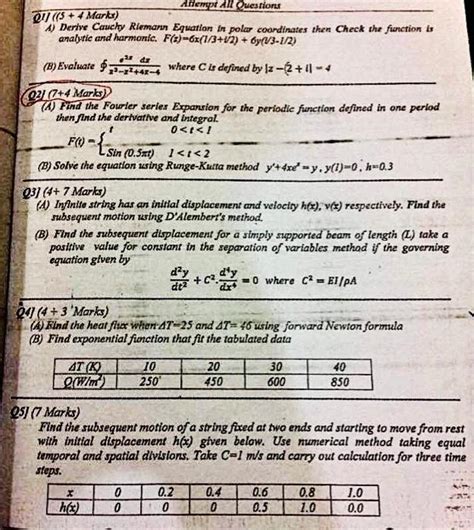 Attempt All Questions
Q1] ((5 + 4 Marks)
A) Derive Cauchy Riemann Equation in polar coordinates then Check the function is
analytic and harmonic. F(z)=6x(1/3+i/2) + 6y(i/3-1/2)
(B) Evaluate ∮ e²ᶻ dz / z³-z²+4z-4 where C is defined by |z -(2 + i| = 4
Q2] (7+4 Marks)
(A) Find the Fourier series Expansion for the periodic function defined in one period
then find the derivative and integral.
F(t) = { t 0 < t < 1
Sin (0.5πt) 1 < t < 2
(B) Solve the equation using Runge-Kutta method y'+4xeˣ = y , y(1)=0 , h=0.3
Q3] (4+ 7 Marks)
(A) Infinite string has an initial displacement and velocity h(x), v(x) respectively. Find the
subsequent motion using D'Alembert's method.
(B) Find the subsequent displacement for a simply supported beam of length (L) take a
positive value for constant in the separation of variables method if the governing
equation given by
d²y/dt² + C². d⁴y/dx⁴ = 0 where C² = EI/ρA
Q4] (4 + 3 Marks)
(A) Find the heat flux when ΔT=25 and ΔT= 46 using forward Newton formula
(B) Find exponential function that fit the tabulated data
ΔT (K) 10 20 30 40
Q(W/m²) 250 450 600 850
Q5] (7 Marks)
Find the subsequent motion of a string fixed at two ends and starting to move from rest
with initial displacement h(x) given below. Use numerical method taking equal
temporal and spatial divisions. Take C=1 m/s and carry out calculation for three time
steps.
x 0 0.2 0.4 0.6 0.8 1.0
h(x) 0 0 0 0.5 1.0 0.0